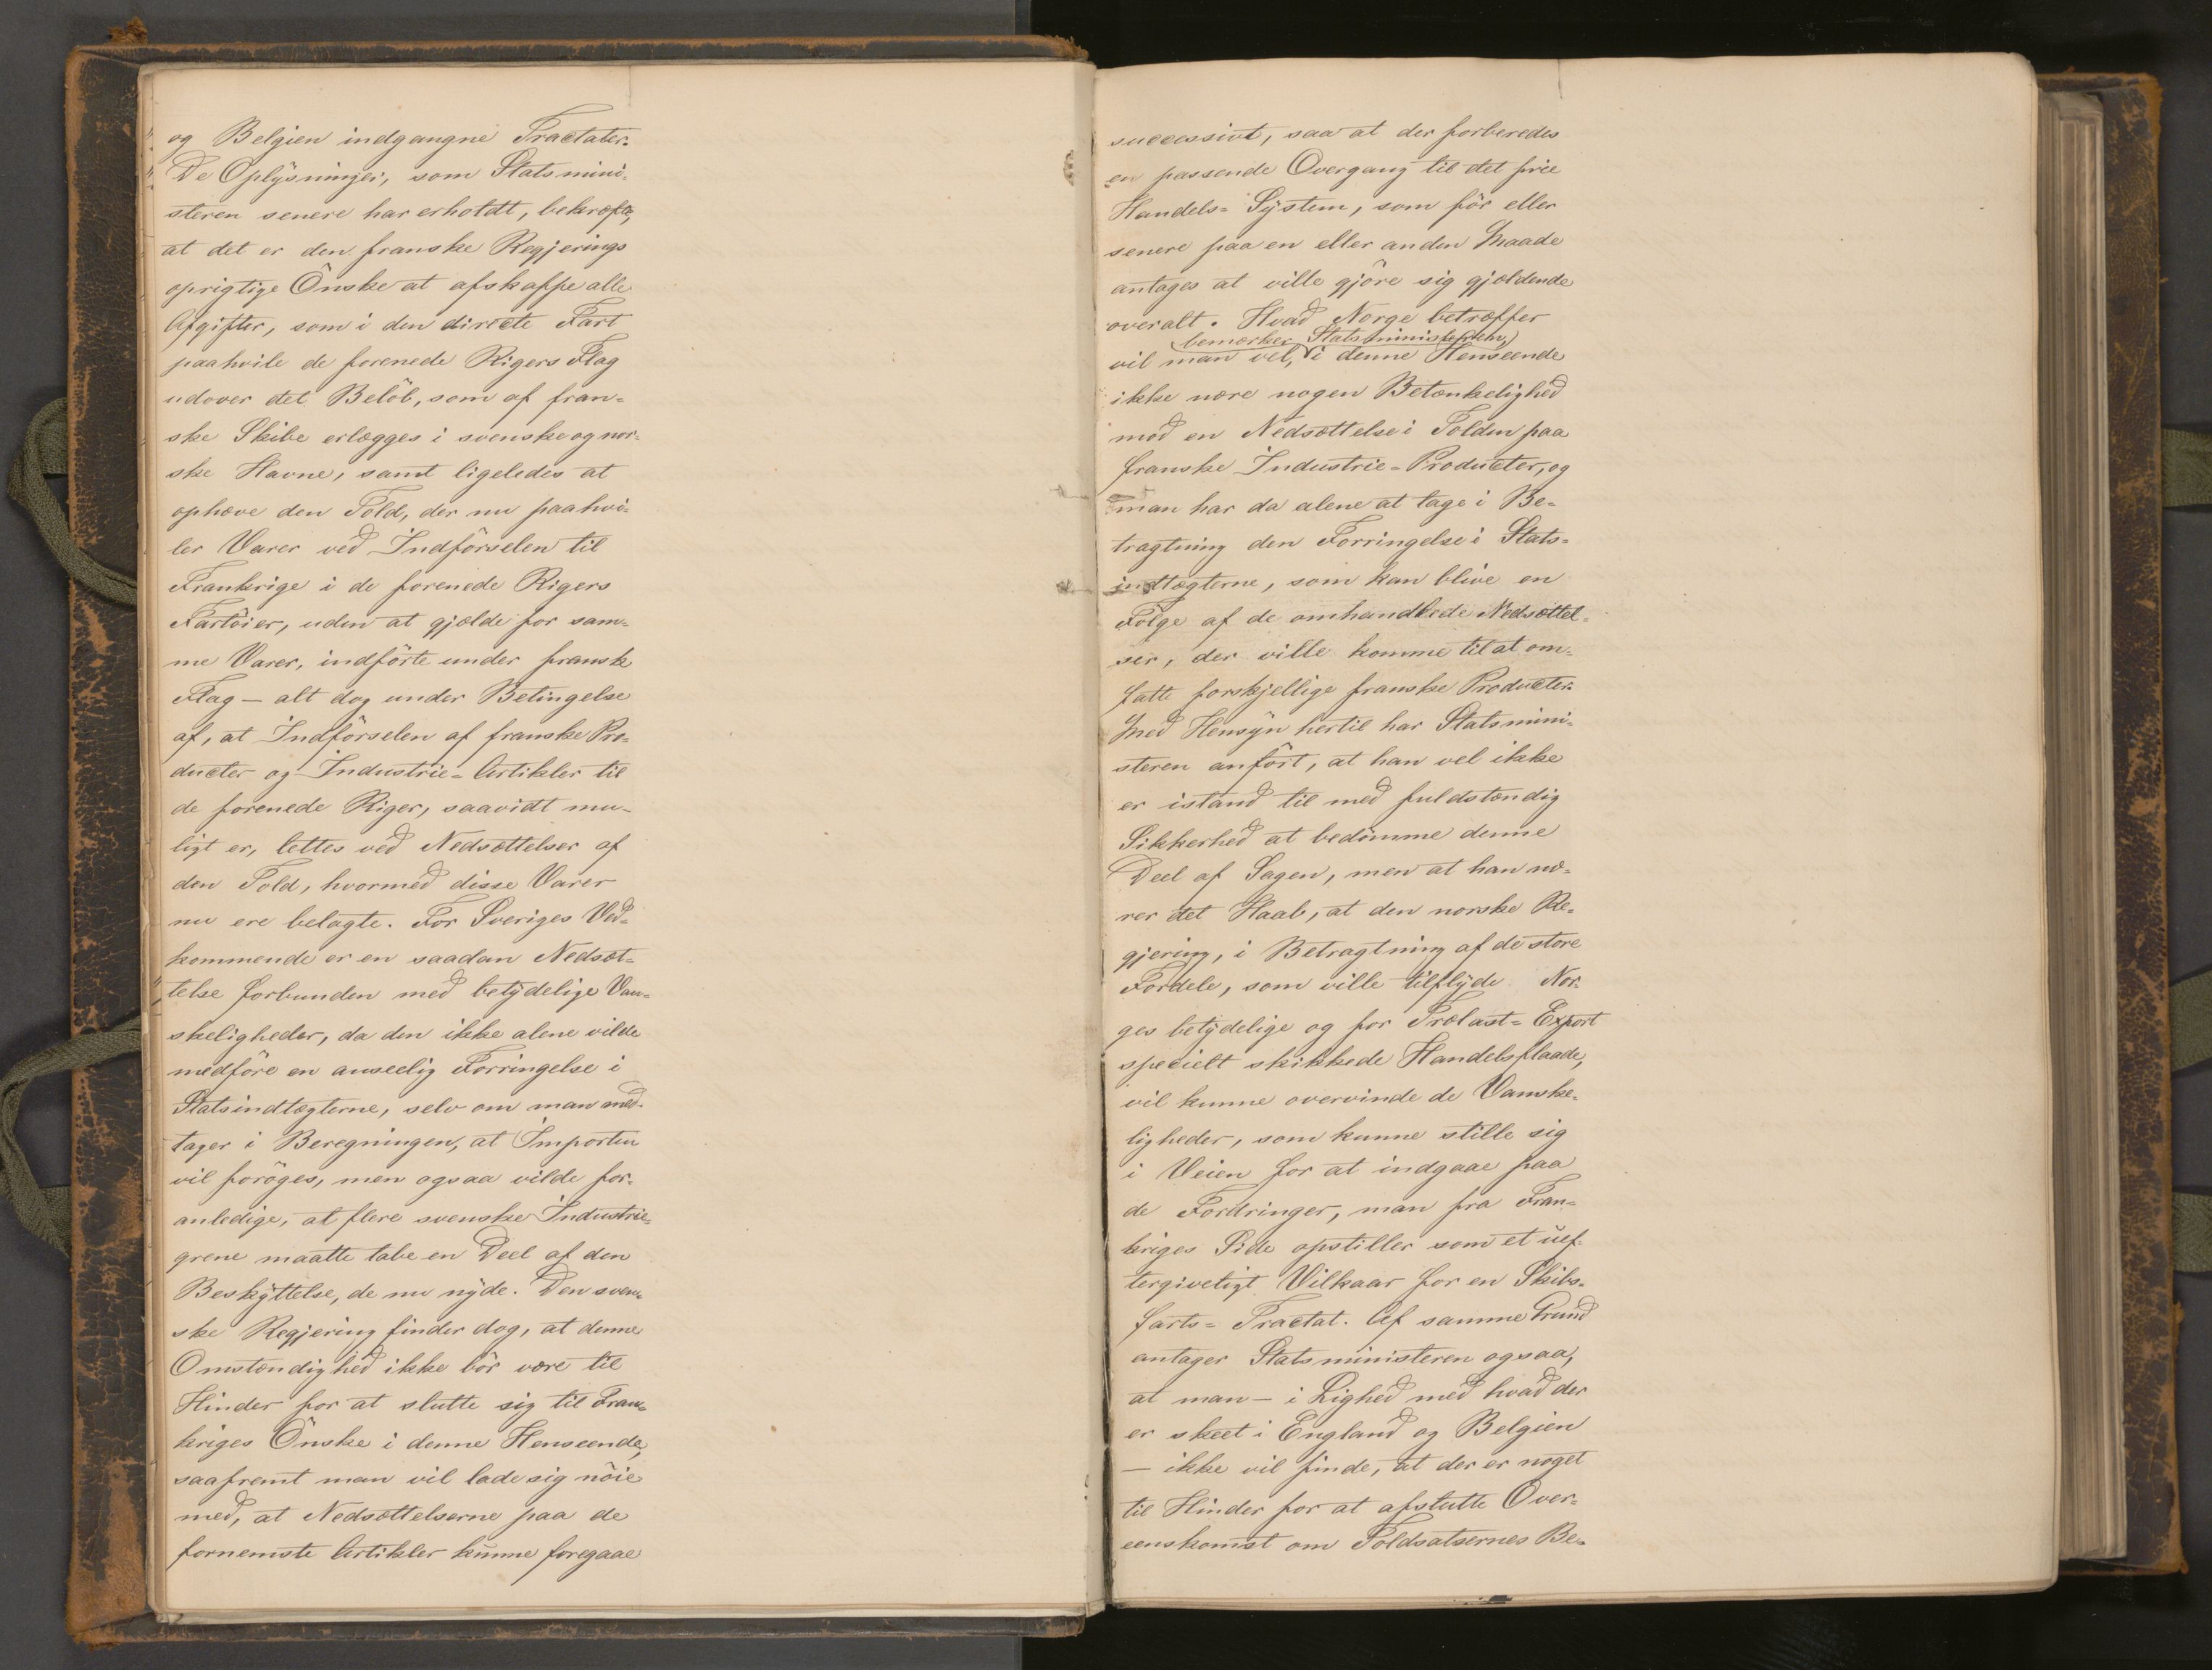 og Belgien indgangne Tractater.
De Oplÿsninger, som Statsmini-
steren senere har erholdt, bekræfte,
at det er den franske Regjerings
oprigtige Önske at afskaffe alle
Afgifter, som i den directe Fart
paahvile de forenede Rigers Flag
udover det Belöb, som af fran-
ske Skibe erlægges i svenske og nor-
ske Havne, samt ligeledes at
ophæve den Told, der nu paahvi-
ler Varer ved Indförselen til
Frankrige i de forenede Rigers
Fartöier, uden at gjælde for sam-
me Varer, indförte under fransk
Flag – alt dog under Betingelse
af, at Indförselen af franske Pro-
ducter og Industrie-Artikler til
de forenede Riger, saavidt mu-
ligt er, lettes ved Nedsættelser af
den Told, hvormed disse Varer
nu ere belagte. For Sveriges Ved-
kommende er en saadan Nedsæt-
telse forbunden med betÿdelige Van-
skeligheder, da den ikke alene vilde
medföre en anseelig Forringelse i
Statsindtægterne, selv om man med-
tager i Beregningen, at Importen
vil foröges, men ogsaa vilde for-
anledige, at flere svenske Industrie-
grene maatte tabe en Deel af den
Beskÿttelse, de nu nÿde. Den sven-
ske Regjering finder dog, at denne
Omstændighed ikke bör være til
Hinder for at slutte sig til Fran-
kriges Önske i denne Henseende,
saafremt man vil lade sig nöie
med, at Nedsættelserne paa de
fornemste Artikler kunne foregaae
successivt, saa at der forberedes
en passende Overgang til det frie
Handels-Sÿstem, som för eller
senere paa en eller anden Maade
antages at ville gjöre sig gjældende
overalt. Hvad Norge betræffer
bemærker Statsministeren,
vil man vel, i denne Henseende
ikke nære nogen Betænkelighed
mod en Nedsættelse i Tolden paa
franske Industrie-Producter, og
man har da alene at tage i Be-
tragtning den Forringelse i Stats-
indtægterne, som kan blive en
Fölge af de omhandlede Nedsættel-
ser, der ville komme til at om-
fatte forskjellige franske Producter.
Med Hensÿn hertil har Statsmini-
steren anfört, at han vel ikke
er istand til med fuldstændig
Sikkerhed at bedömme denne
Deel af Sagen, men at han næ-
rer det Haab, at den norske Re-
gjering, i Betragtning af de store
Fordele, som ville tilflÿde Nor-
ges betÿdelige og for Trælast-Export
specielt skikkede Handelsflaade,
vil kunne overvinde de Vanske-
ligheder, som kunne stille sig
i Veien for at indgaae paa
de Fordringer, man fra Fran-
kriges Side opstiller som et uef-
tergiveligt Vilkaar for en Skibs-
farts-Tractat. Af samme Grund
antager Statsministeren ogsaa,
at man – i Lighed med hvad der
er skeet i England og Belgien
– ikke vil finde, at der er noget
til Hinder for at afslutte Over-
eenskomst om Toldsatsernes Be-